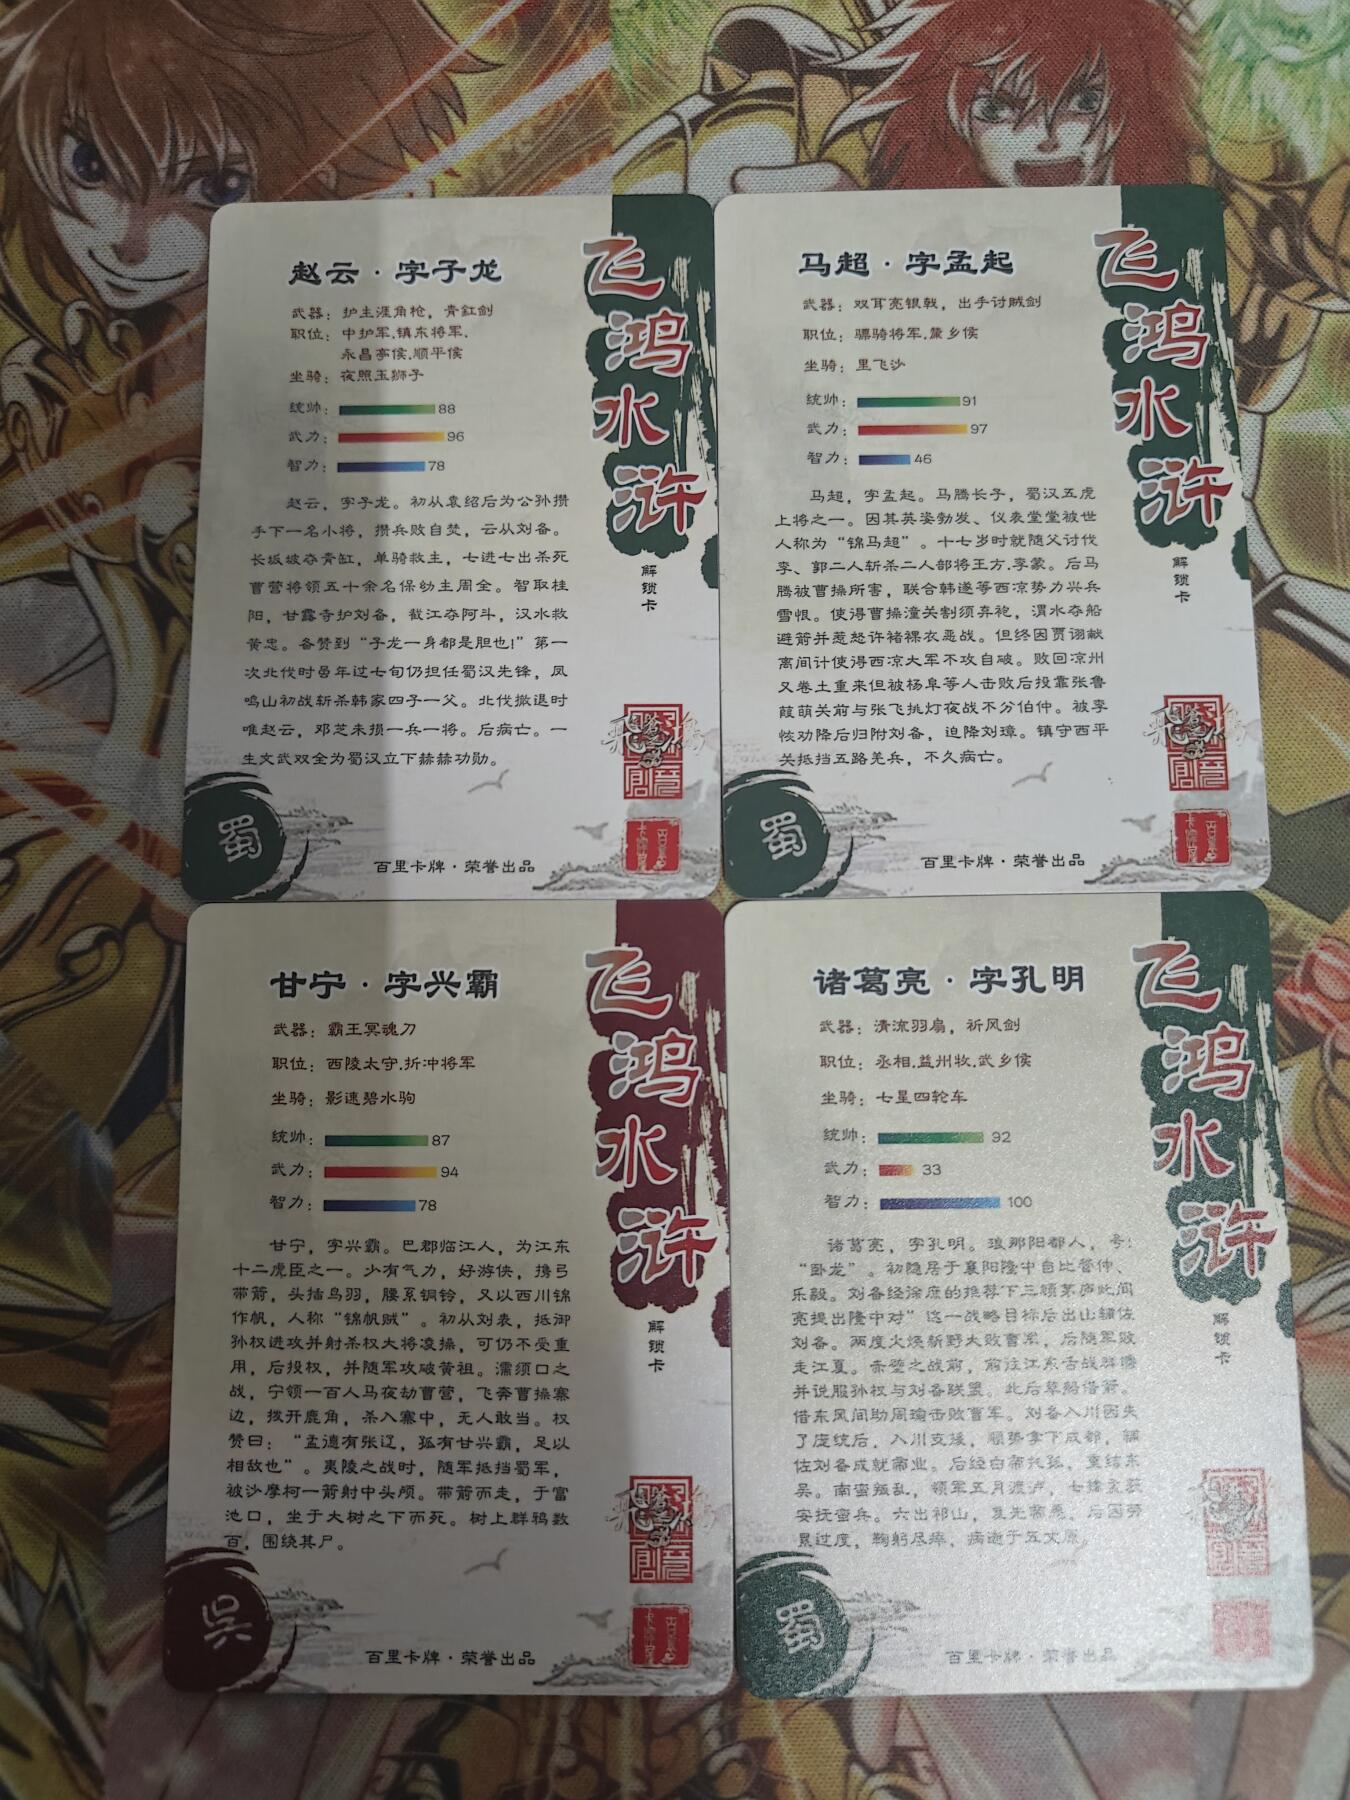 赵云·字子龙
武器：护主涯角枪，青釭剑
职位：中护军.镇东将军.
永昌亭侯.顺平侯
坐骑：夜照玉狮子
统帅：88
武力：96
智力：78
赵云，字子龙。初从袁绍后为公孙攒
手下一名小将，攒兵败自焚，云从刘备。
长坂坡夺青缸，单骑救主，七进七出杀死
曹营将领五十余名保幼主周全。智取桂
阳，甘露寺护刘备，截江夺阿斗，汉水救
黄忠。备赞到“子龙一身都是胆也！”第一
次北伐时虽年过七旬仍担任蜀汉先锋，凤
鸣山初战斩杀韩家四子一父。北伐撤退时
唯赵云，邓芝未损一兵一将。后病亡。一
生文武双全为蜀汉立下赫赫功勋。
飞鸿水浒
解锁卡
蜀
百里卡牌·荣誉出品
马超·字孟起
武器：双耳亮银戟，出手讨贼剑
职位：骠骑将军.斄乡侯
坐骑：里飞沙
统帅：91
武力：97
智力：46
马超，字孟起。马腾长子，蜀汉五虎
上将之一。因其英姿勃发、仪表堂堂被世
人称为“锦马超”。十七岁时就随父讨伐
李、郭二人斩杀二人部将王方.李蒙。后马
腾被曹操所害，联合韩遂等西凉势力兴兵
雪恨。使得曹操潼关割须弃袍，渭水夺船
避箭并惹怒许褚裸衣恶战。但终因贾诩献
离间计使得西凉大军不攻自破。败回凉州
又卷土重来但被杨阜等人击败后投靠张鲁
葭萌关前与张飞挑灯夜战不分伯仲。被李
恢劝降后归附刘备，迫降刘璋。镇守西平
关抵挡五路羌兵，不久病亡。
飞鸿水浒
解锁卡
蜀
百里卡牌·荣誉出品
甘宁·字兴霸
武器：霸王冥魂刀
职位：西陵太守.折冲将军
坐骑：影速碧水驹
统帅：87
武力：94
智力：78
甘宁，字兴霸。巴郡临江人，为江东
十二虎臣之一。少有气力，好游侠，携弓
带箭，头插鸟羽，腰系铜铃，又以西川锦
作帆，人称“锦帆贼”。初从刘表，抵御
孙权进攻并射杀权大将凌操，可仍不受重
用，后投权，并随军攻破黄祖。濡须口之
战，宁领一百人马夜劫曹营，飞奔曹操寨
边，拨开鹿角，杀入寨中，无人敢当。权
赞曰：“孟德有张辽，孤有甘兴霸，足以
相敌也”。夷陵之战时，随军抵挡蜀军，
被沙摩柯一箭射中头颅。带箭而走，于富
池口，坐于大树之下而死。树上群鸦数
百，围绕其尸。
飞鸿水浒
解锁卡
吴
百里卡牌·荣誉出品
诸葛亮·字孔明
武器：清流羽扇，祈风剑
职位：丞相.益州牧.武乡侯
坐骑：七星四轮车
统帅：92
武力：33
智力：100
诸葛亮，字孔明。琅那阳都人，号：
“卧龙”。初隐居于襄阳隆中自比管仲、
乐毅。刘备经徐庶的推荐下三顾茅庐此间
亮提出隆中对”这一战略目标后出山辅佐
刘备。两度火烧新野大败曹军，后随军败
走江夏。赤壁之战前，前往江东舌战群儒
并说服孙权与刘备联盟。此后草船借箭。
借东风间助周瑜击败曹军。刘备入川因失
了庞统后，入川支援，顺势拿下成都，辅
佐刘备成就帝业。后经白帝托孤，重结东
吴。南蛮叛乱，领军五月渡泸，七擒孟获
安抚蛮兵。六出祁山，复先帝愿，后因劳
累过度，鞠躬尽瘁，病逝于五丈原
飞鸿水浒
解锁卡
蜀
百里卡牌·荣誉出品